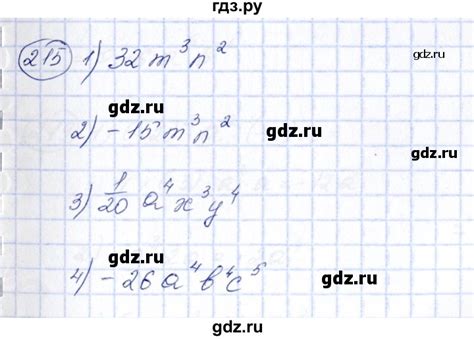 гдз.ру
215 1) 32 m³n²
gdz.ru
2) -15m³n²
gdz.ru
gdz.ru
3) 1/20 a⁴x³y⁴
gdz.ru
gdz.ru
4) -26a⁴b⁴c⁵